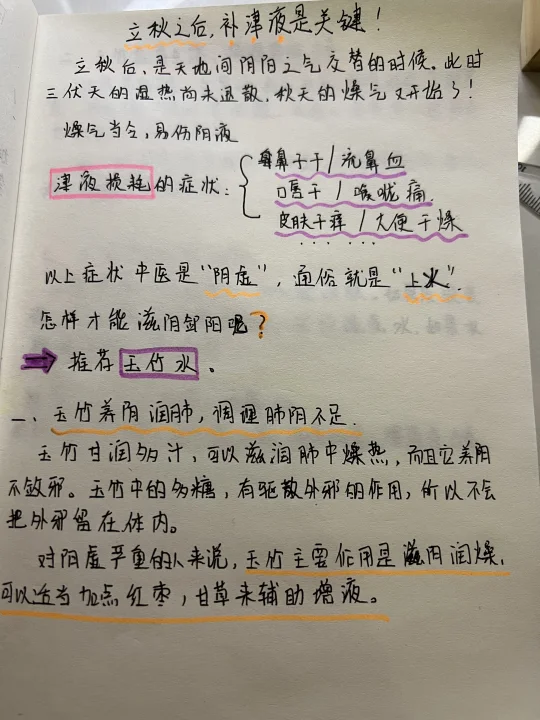 立秋之后,补津液是关键!
立秋后,是天地间阴阳之气交替的时候。此时
三伏天的湿热尚未退散,秋天的燥气又开始了!
燥气当令,易伤阴液
津液损耗的症状:
鼻子干/流鼻血
口唇干/喉咙痛
皮肤干痒/大便干燥
······
以上症状中医是“阴虚”,通俗就是“上火”.
怎样才能滋阴卸阳呢?
推荐玉竹水。
一、玉竹养阴润肺,调理肺阴不足.
玉竹甘润多汁,可以滋润肺中燥热,而且它养阴
不敛邪。玉竹中的多糖,有驱散外邪的作用,所以不会
把外邪留在体内。
对阴虚严重的人来说,玉竹主要作用是滋阴润燥,
可以适当加点红枣,甘草来辅助增液。